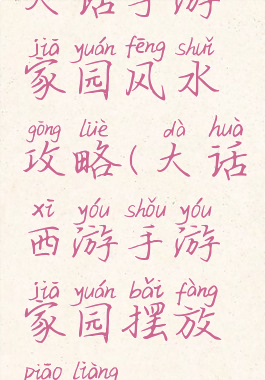 大话手游
jiā yuán fēng shuǐ
家园风水
gōng lüè dà huà
攻略(大话
xī yóu shǒu yóu
西游手游
jiā yuán bǎi fàng
家园摆放
piāo liàng